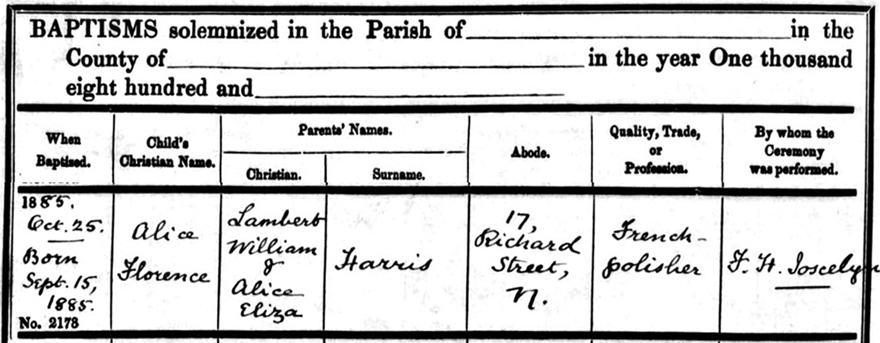 BAPTISMS solemnized in the Parish of in the
County of in the year One thousand
eight hundred and
When
Baptised.
Child's
Christian Name.
Parents' Names.
Christian.
Surname.
Abode.
Quality, Trade,
or
Profession.
By whom the
Ceremony
was performed.
1885.
Oct. 25.
Born
Sept. 15,
1885.
No. 2173
Alice
Florence
Lambert
William
&
Alice
Eliza
Harris
17,
Richard
Street,
N.
French-
polisher
F. H. Joscelyn